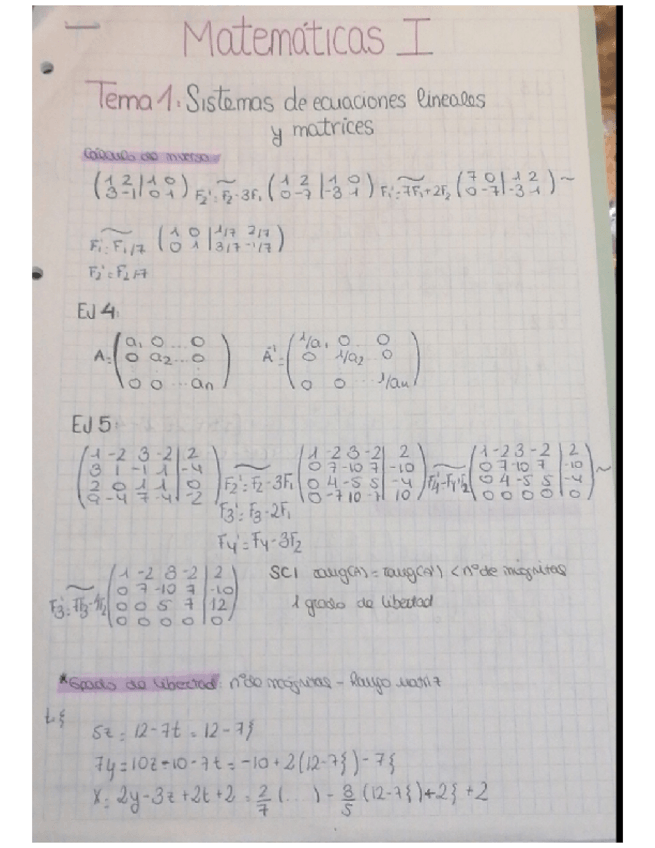 Matemáticas I
Tema 1: Sistemas de ecuaciones lineales
y matrices
Cálculo de inversa
(1 2 | 1 0
3 -1 | 0 1) F2'=F2-3F1 (1 2 | 1 0
0 -7 | -3 1) F1'=7F1+2F2 (7 0 | 1 2
0 -7 | -3 1) ~
F1'=F1/7 (1 0 | 1/7 2/7
0 1 | 3/7 -1/7)
F2'=F2/7
EJ 4:
A=(a1 0 ... 0
0 a2 ... 0
0 0 ... an) A⁻¹=(1/a1 0 ... 0
0 1/a2 0
0 0 ... 1/an)
EJ 5:
(1 -2 3 -2 | 2
3 1 -1 1 | -4
2 0 1 1 | 0
9 -4 7 -4 | -2) F2'=F2-3F1 (1 -2 3 -2 | 2
0 7 -10 7 | -10
0 4 -5 5 | -4
0 -7 10 -7 | 10) (1 -2 3 -2 | 2
0 7 -10 7 | -10
0 4 -5 5 | -4
0 0 0 0 | 0) ~
F3'=F3-2F1
F4'=F4-3F2
(1 -2 3 -2 | 2
0 7 -10 7 | -10
0 0 5 7 | 12
0 0 0 0 | 0) SCI rang(A)=rang(A') < nº de incógnitas
1 grado de libertad
*Grado de libertad: nº de incógnitas - Rango matriz
5z = 12-7t = 12-7ξ
7y = 10z-10-7t = -10+2(12-7ξ)-7ξ
x = 2y-3z+2t+2 = 2/7 (...) - 3/5 (12-7ξ)+2ξ+2